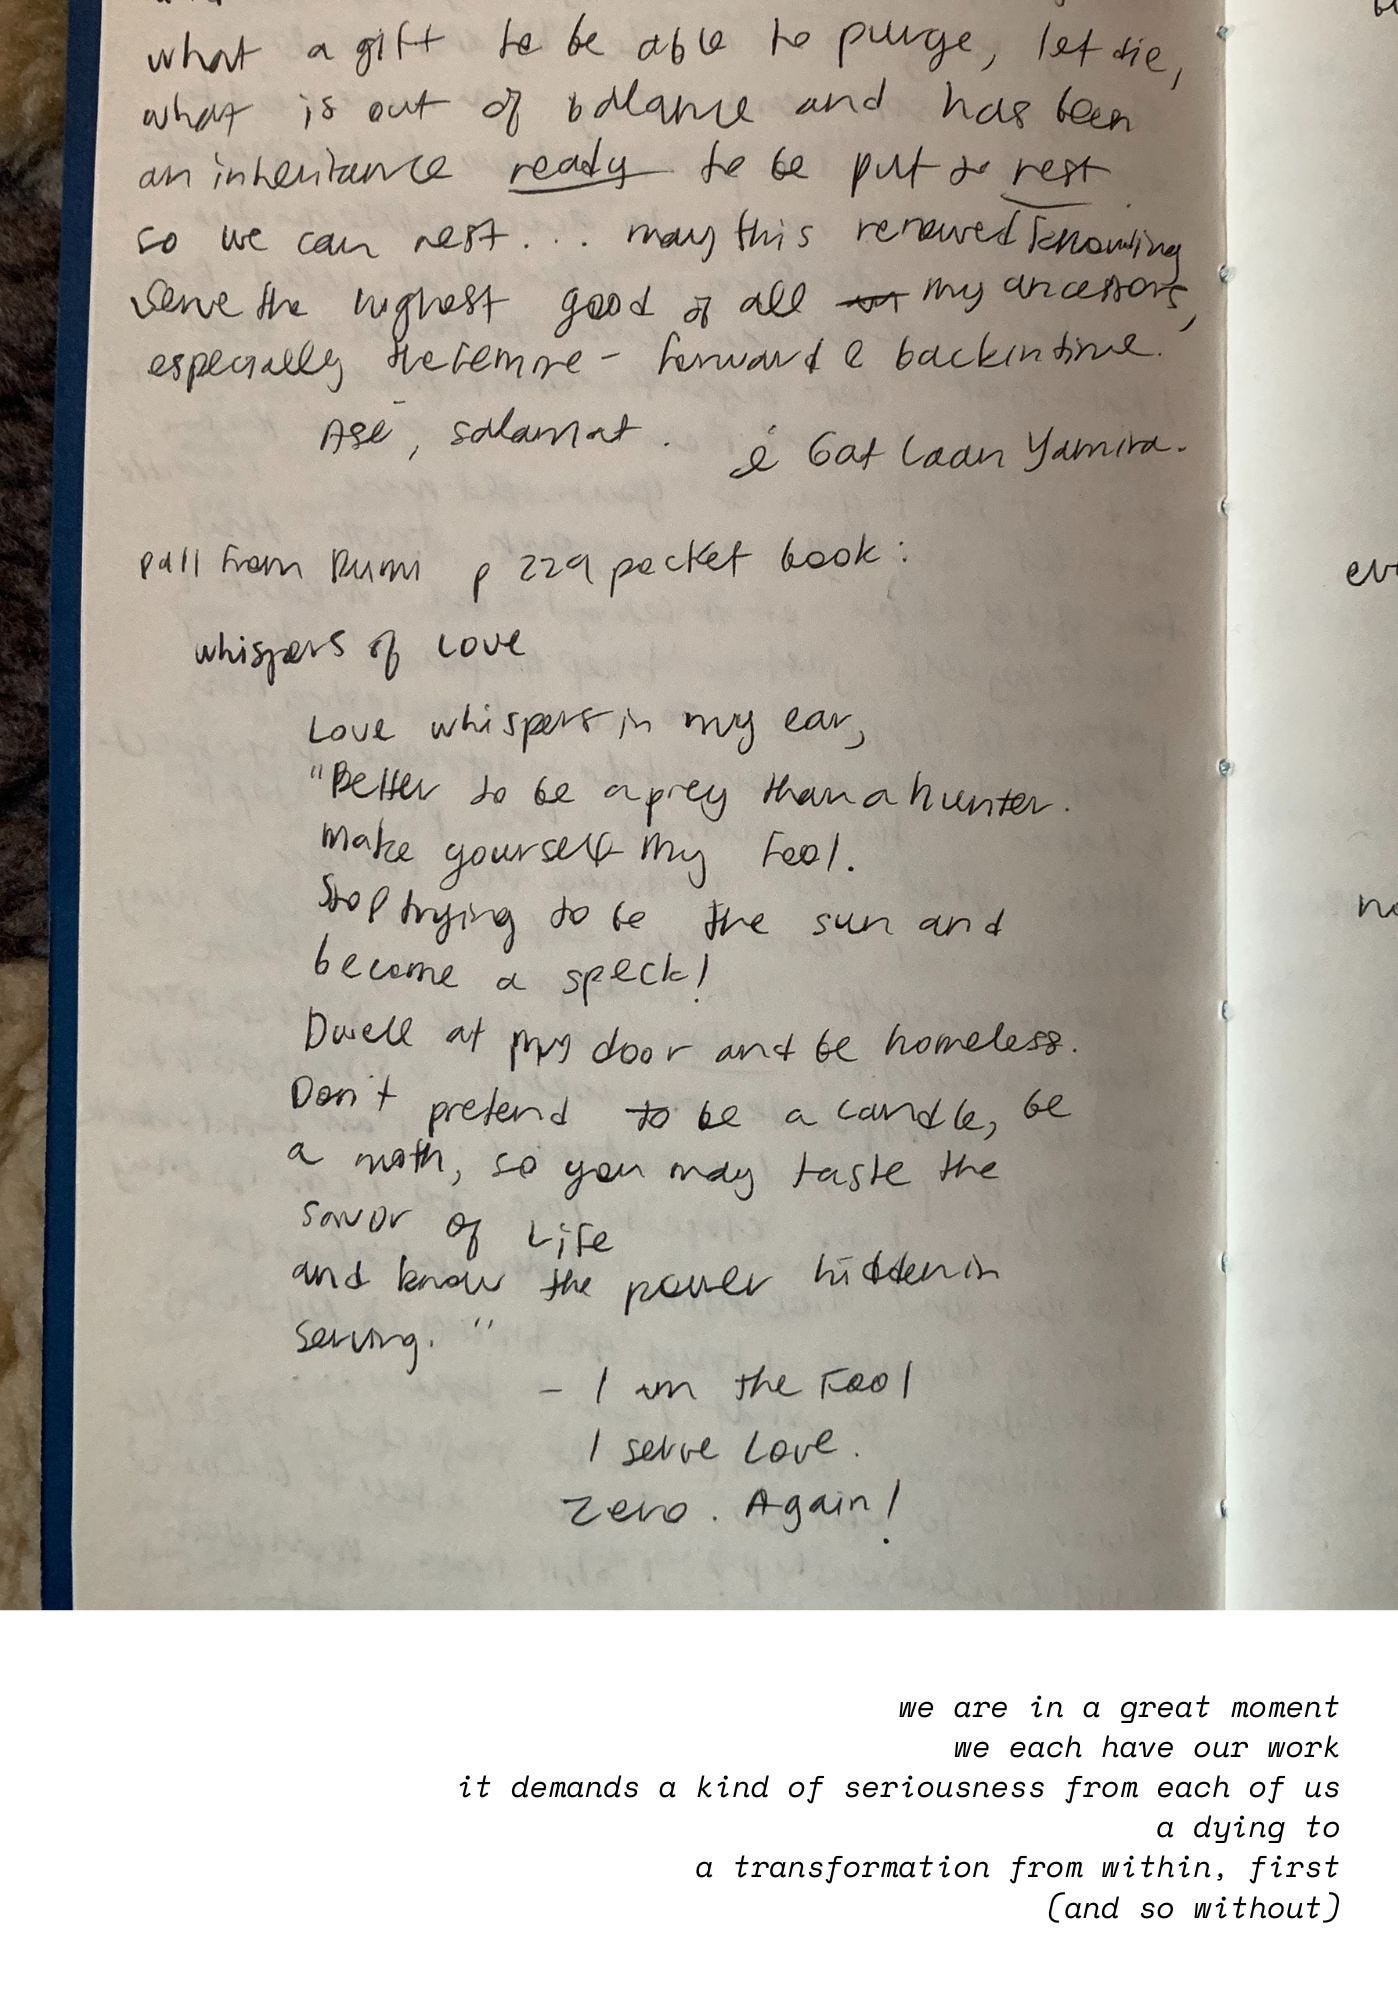 what a gift to be able to purge, let die,
what is out of balance and has been
an inheritance ready to be put to rest
so we can rest... may this renewed knowing
serve the highest good of all my ancestors,
especially the femme - forward & back in time.
Asé, salamat. & Gat Laan Yamira.
pull from Rumi p 229 pocket book:
whispers of Love
Love whispers in my ear,
"Better to be a prey than a hunter.
Make yourself My Fool.
Stop trying to be the sun and
become a speck!
Dwell at My door and be homeless.
Don't pretend to be a candle, be
a moth, so you may taste the
savor of Life
and know the power hidden in
serving."
- I am the Fool
I serve Love.
Zero. Again!
we are in a great moment
we each have our work
it demands a kind of seriousness from each of us
a dying to
a transformation from within, first
(and so without)